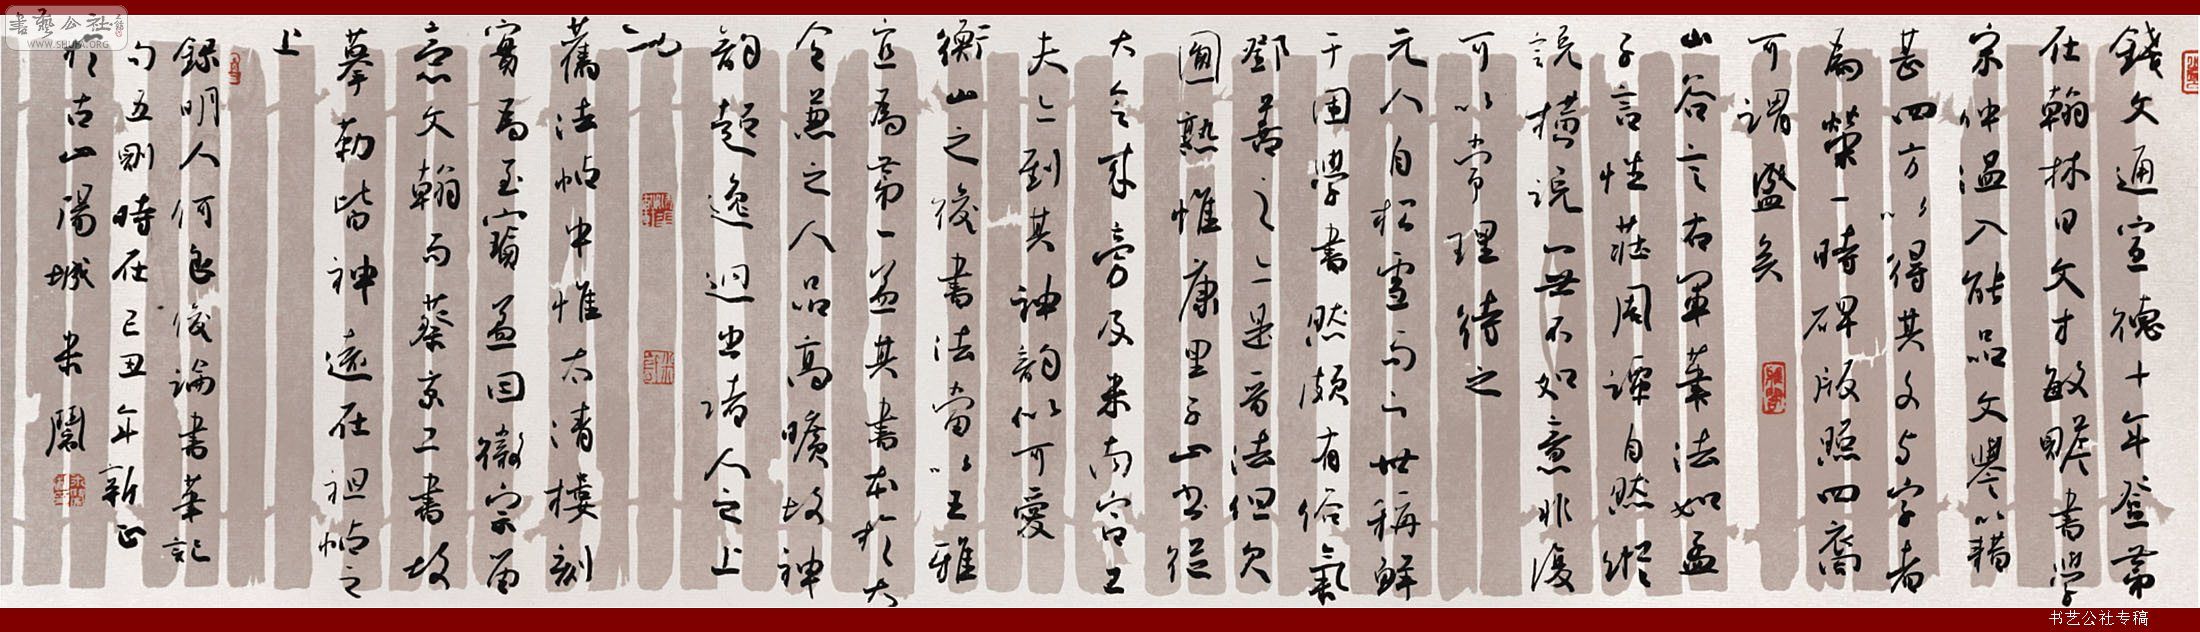 書藝公社
WWW.SHUFA.ORG
錢文通宣德十年登第
在翰林日文才敏贍書學
宗仲溫入能品文譽以藉
甚四方以得其文与字者
為榮一時碑版照四裔
可謂盛矣
山谷言右軍筆法如孟
子言性莊周譚自然縱
說橫說無不如意非復
可以常理待之
元人自松雪而下世稱鮮
于困學書然頗有俗氣
鄧善之亦是晉法但欠
圓熟惟康里子山書從
大令來旁及米南宮工
夫亦到其神韻似可愛
衡山之後書法當以王雅
宜為第一蓋其書本於大
令兼之人品高曠故神
韻超逸迥出諸人之上
舊法帖中惟太清樓刻
實為至寶蓋因徽宗留
意文翰而蔡京工書故
摹勒皆神遠在祖帖之
上
錄明人何良俊論書筆記
句五則時在己丑年新正
於古山陽城
书艺公社专稿